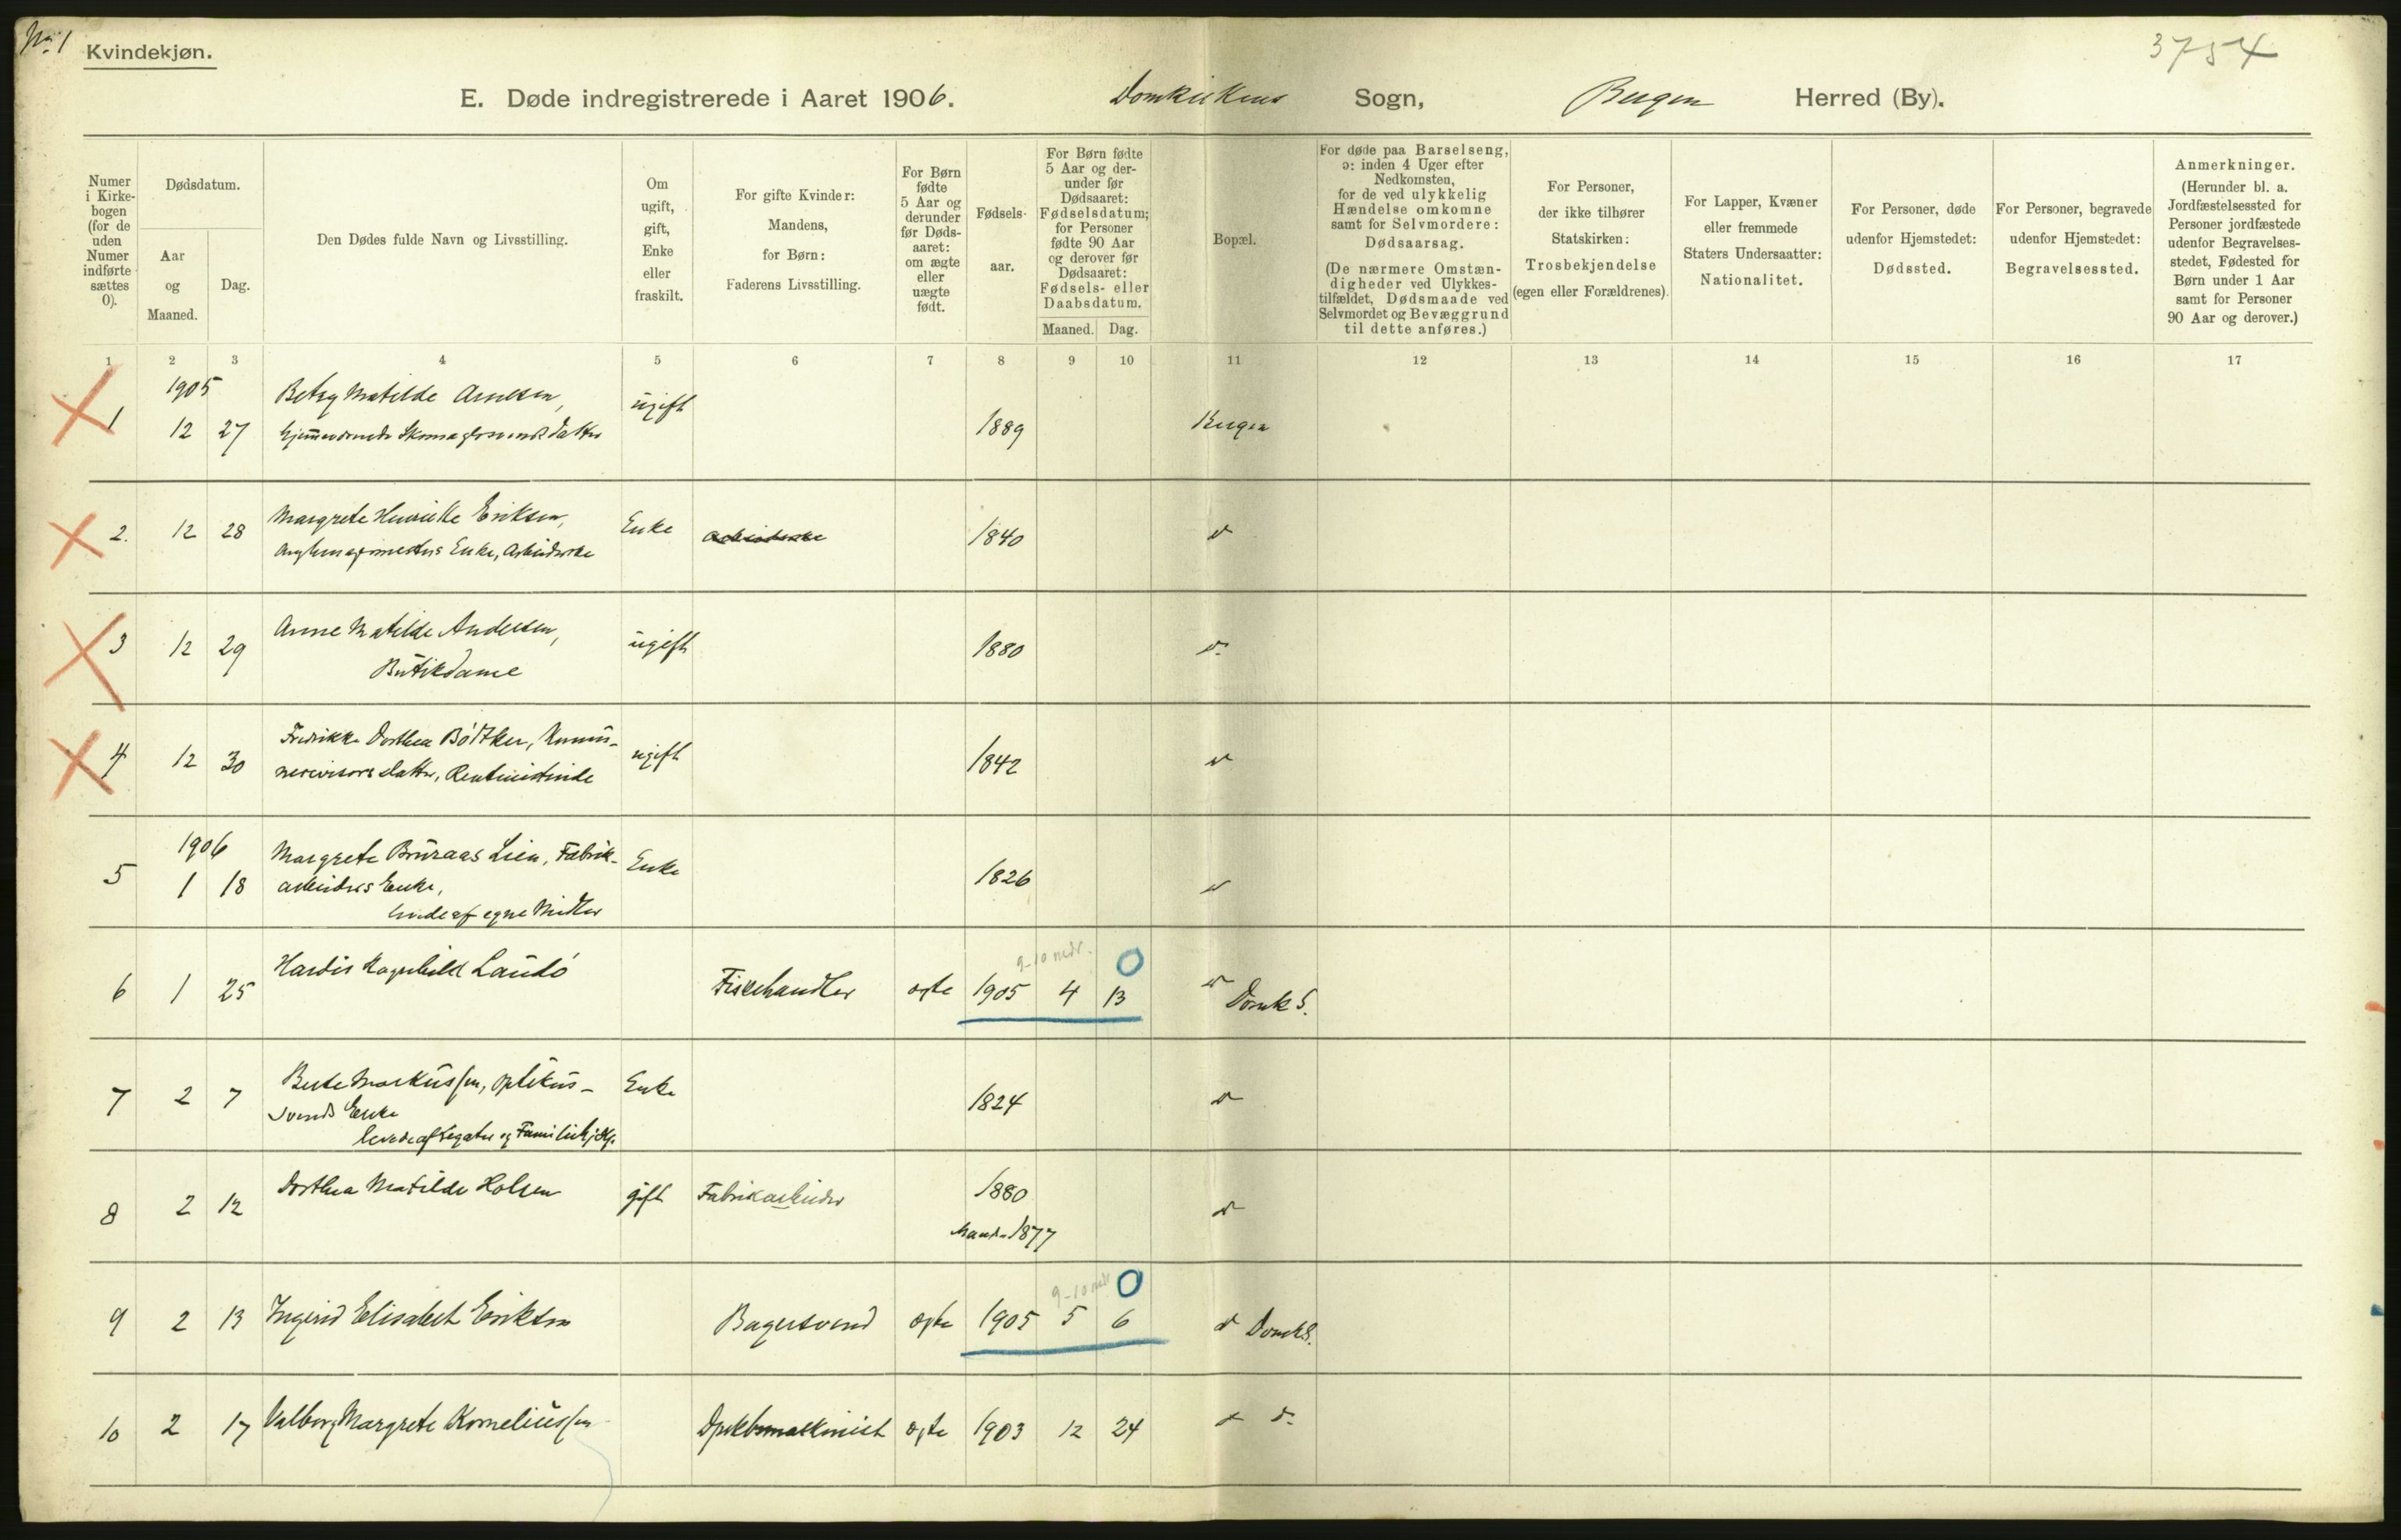 No 1
Kvindekjøn.
3754
E. Døde indregistrerede i Aaret 1906. Domkirkens Sogn, Bergen Herred (By).
Numer i Kirke-bogen (for de uden Numer indførte sættes 0).
Dødsdatum.
Aar og Maaned.
Dag.
Den Dødes fulde Navn og Livsstilling.
Om ugift, gift, Enke eller fraskilt.
For gifte Kvinder: Mandens, for Børn: Faderens Livsstilling.
For Børn fødte 5 Aar og derunder før Døds-aaret: om ægte eller uægte født.
Fødsels-aar.
For Børn fødte 5 Aar og der-under før Dødsaaret: Fødselsdatum; for Personer fødte 90 Aar og derover før Dødsaaret: Fødsels- eller Daabsdatum.
Maaned. Dag.
Bopæl.
For døde paa Barselseng, ɔ: inden 4 Uger efter Nedkomsten, for de ved ulykkelig Hændelse omkomne samt for Selvmordere: Dødsaarsag. (De nærmere Omstæn-digheder ved Ulykkes-tilfældet, Dødsmaade ved Selvmordet og Bevæggrund til dette anføres.)
For Personer, der ikke tilhører Statskirken: Trosbekjendelse (egen eller Forældrenes).
For Lapper, Kvæner eller fremmede Staters Undersaatter: Nationalitet.
For Personer, døde udenfor Hjemstedet: Dødssted.
For Personer, begravede udenfor Hjemstedet: Begravelsessted.
Anmerkninger. (Herunder bl. a. Jordfæstelsessted for Personer jordfæstede udenfor Begravelses-stedet, Fødested for Børn under 1 Aar samt for Personer 90 Aar og derover.)
1 2 3 4 5 6 7 8 9 10 11 12 13 14 15 16 17
1905 Betzy Matilde Arnesen, ugift
1 12 27 hjemmeværende Skomagersvends Datter 1889 Bergen
2. 12 28 Margrete Henrikke Eriksen, Enke 1840 d
Enke, Arbeiderske
3 12 29 Anne Matilde Andersen, ugift 1880 d
Butikdame
4 12 30 Fredrikke Dorthea Bödtker, ugift 1842 d
Datter, Rentenistinde
1906 Margrete Bruraas Lien, Fabrik-
5 1 18 arbeiders Enke, Enke 1826 d
levede af egne Midler
9-10 mdr. 0
6 1 25 Hardis Ragnhild Landö Fiskehandler ægte 1905 4 13 d Domk S.
7 2 7 Berte Markussen, Optikus- Enke 1824 d
svends Enke
levede af Legater og Familiehjælp.
8 2 12 Dorthea Matilde Holsen gift Fabrikarbeider 1880 d
Mand 1877
9-10 mdr 0
9 2 13 Ingrid Elisabet Eriksen Bagersvend ægte 1905 5 6 d Domk S.
10 2 17 Valborg Margrete Korneliussen ægte 1903 12 24 d d